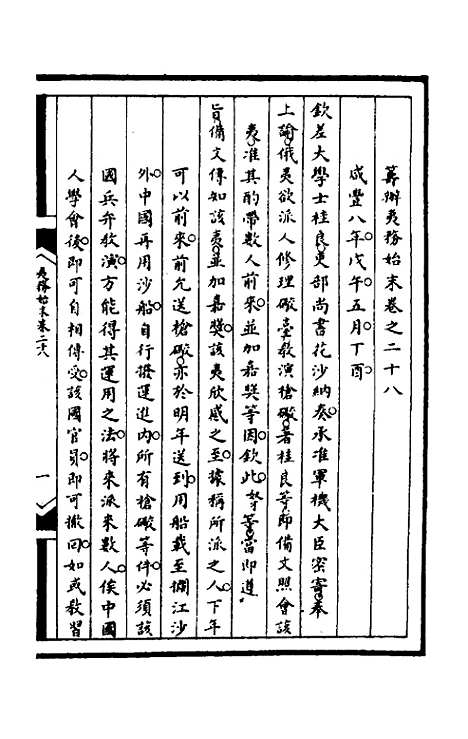 籌辦夷務始末卷之二十八
咸豐八年戊午五月丁酉
欽差大學士桂良吏部尚書花沙納奏承准軍機大臣密寄奉
上諭俄夷欲派人修理礮臺教演槍礮著桂良等即備文照會該
夷准其酌帶數人前來並加嘉奬等因欽此奴才等當即遵
旨備文傳知該夷並加嘉奬該夷欣感之至據稱所派之人下年
可以前來前允送槍礮亦於明年送到用船載至攔江沙
外中國再用沙船自行撥運進內所有槍礮等件必須該
國兵弁教演方能得其運用之法將來派來數人俟中國
人學會後即可自相傳受該國官員即可撤回如或教習
夷務始末卷二十八
一